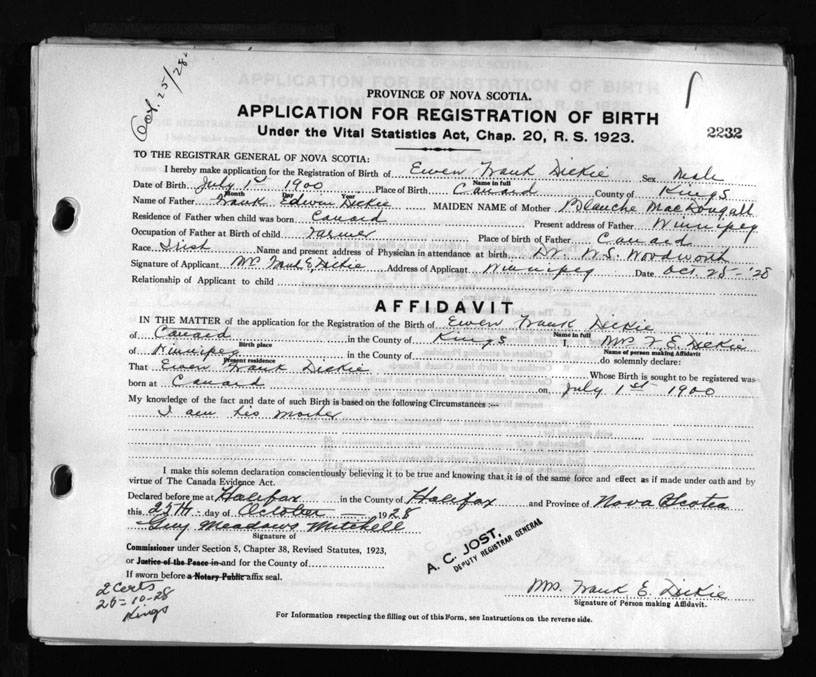 Oct. 25/28
PROVINCE OF NOVA SCOTIA.
APPLICATION FOR REGISTRATION OF BIRTH
Under the Vital Statistics Act, Chap. 20, R. S. 1923.
2232
TO THE REGISTRAR GENERAL OF NOVA SCOTIA:
I hereby make application for the Registration of Birth of Ewen Frank Dickie Sex Male
Name in full
Date of Birth July 1st 1900 Place of Birth Canard County of Kings
Month Day Year
Name of Father Frank Edwin Dickie MAIDEN NAME of Mother Blanche MacDougall
Residence of Father when child was born Canard Present address of Father Winnipeg
Occupation of Father at Birth of child Farmer Place of birth of Father Canard
Race Irish Name and present address of Physician in attendance at birth Dr. W. S. Woodworth
Signature of Applicant Mrs Frank E. Dickie Address of Applicant Winnipeg Date Oct 25 - '28
Relationship of Applicant to child
AFFIDAVIT
IN THE MATTER of the application for the Registration of the Birth of Ewen Frank Dickie
Name in full
of Canard in the County of Kings I, Mrs F. E. Dickie
Birth place Name of person making Affidavit
of Winnipeg in the County of do solemnly declare:
Present residence
That Ewen Frank Dickie Whose Birth is sought to be registered was
born at Canard on July 1st 1900
My knowledge of the fact and date of such Birth is based on the following Circumstances :—
I am his mother
I make this solemn declaration conscientiously believing it to be true and knowing that it is of the same force and effect as if made under oath and by
virtue of The Canada Evidence Act.
Declared before me at Halifax in the County of Halifax and Province of Nova Scotia
this 25th day of October 1928
Guy Meadows Mitchell
Signature of
A. C. JOST,
DEPUTY REGISTRAR GENERAL
Commissioner under Section 5, Chapter 38, Revised Statutes, 1923,
or Justice of the Peace in and for the County of
If sworn before a Notary Public affix seal.
2 Certs
26-10-28
Kings
Mrs. Frank E. Dickie
Signature of Person making Affidavit.
For Information respecting the filling out of this Form, see Instructions on the reverse side.